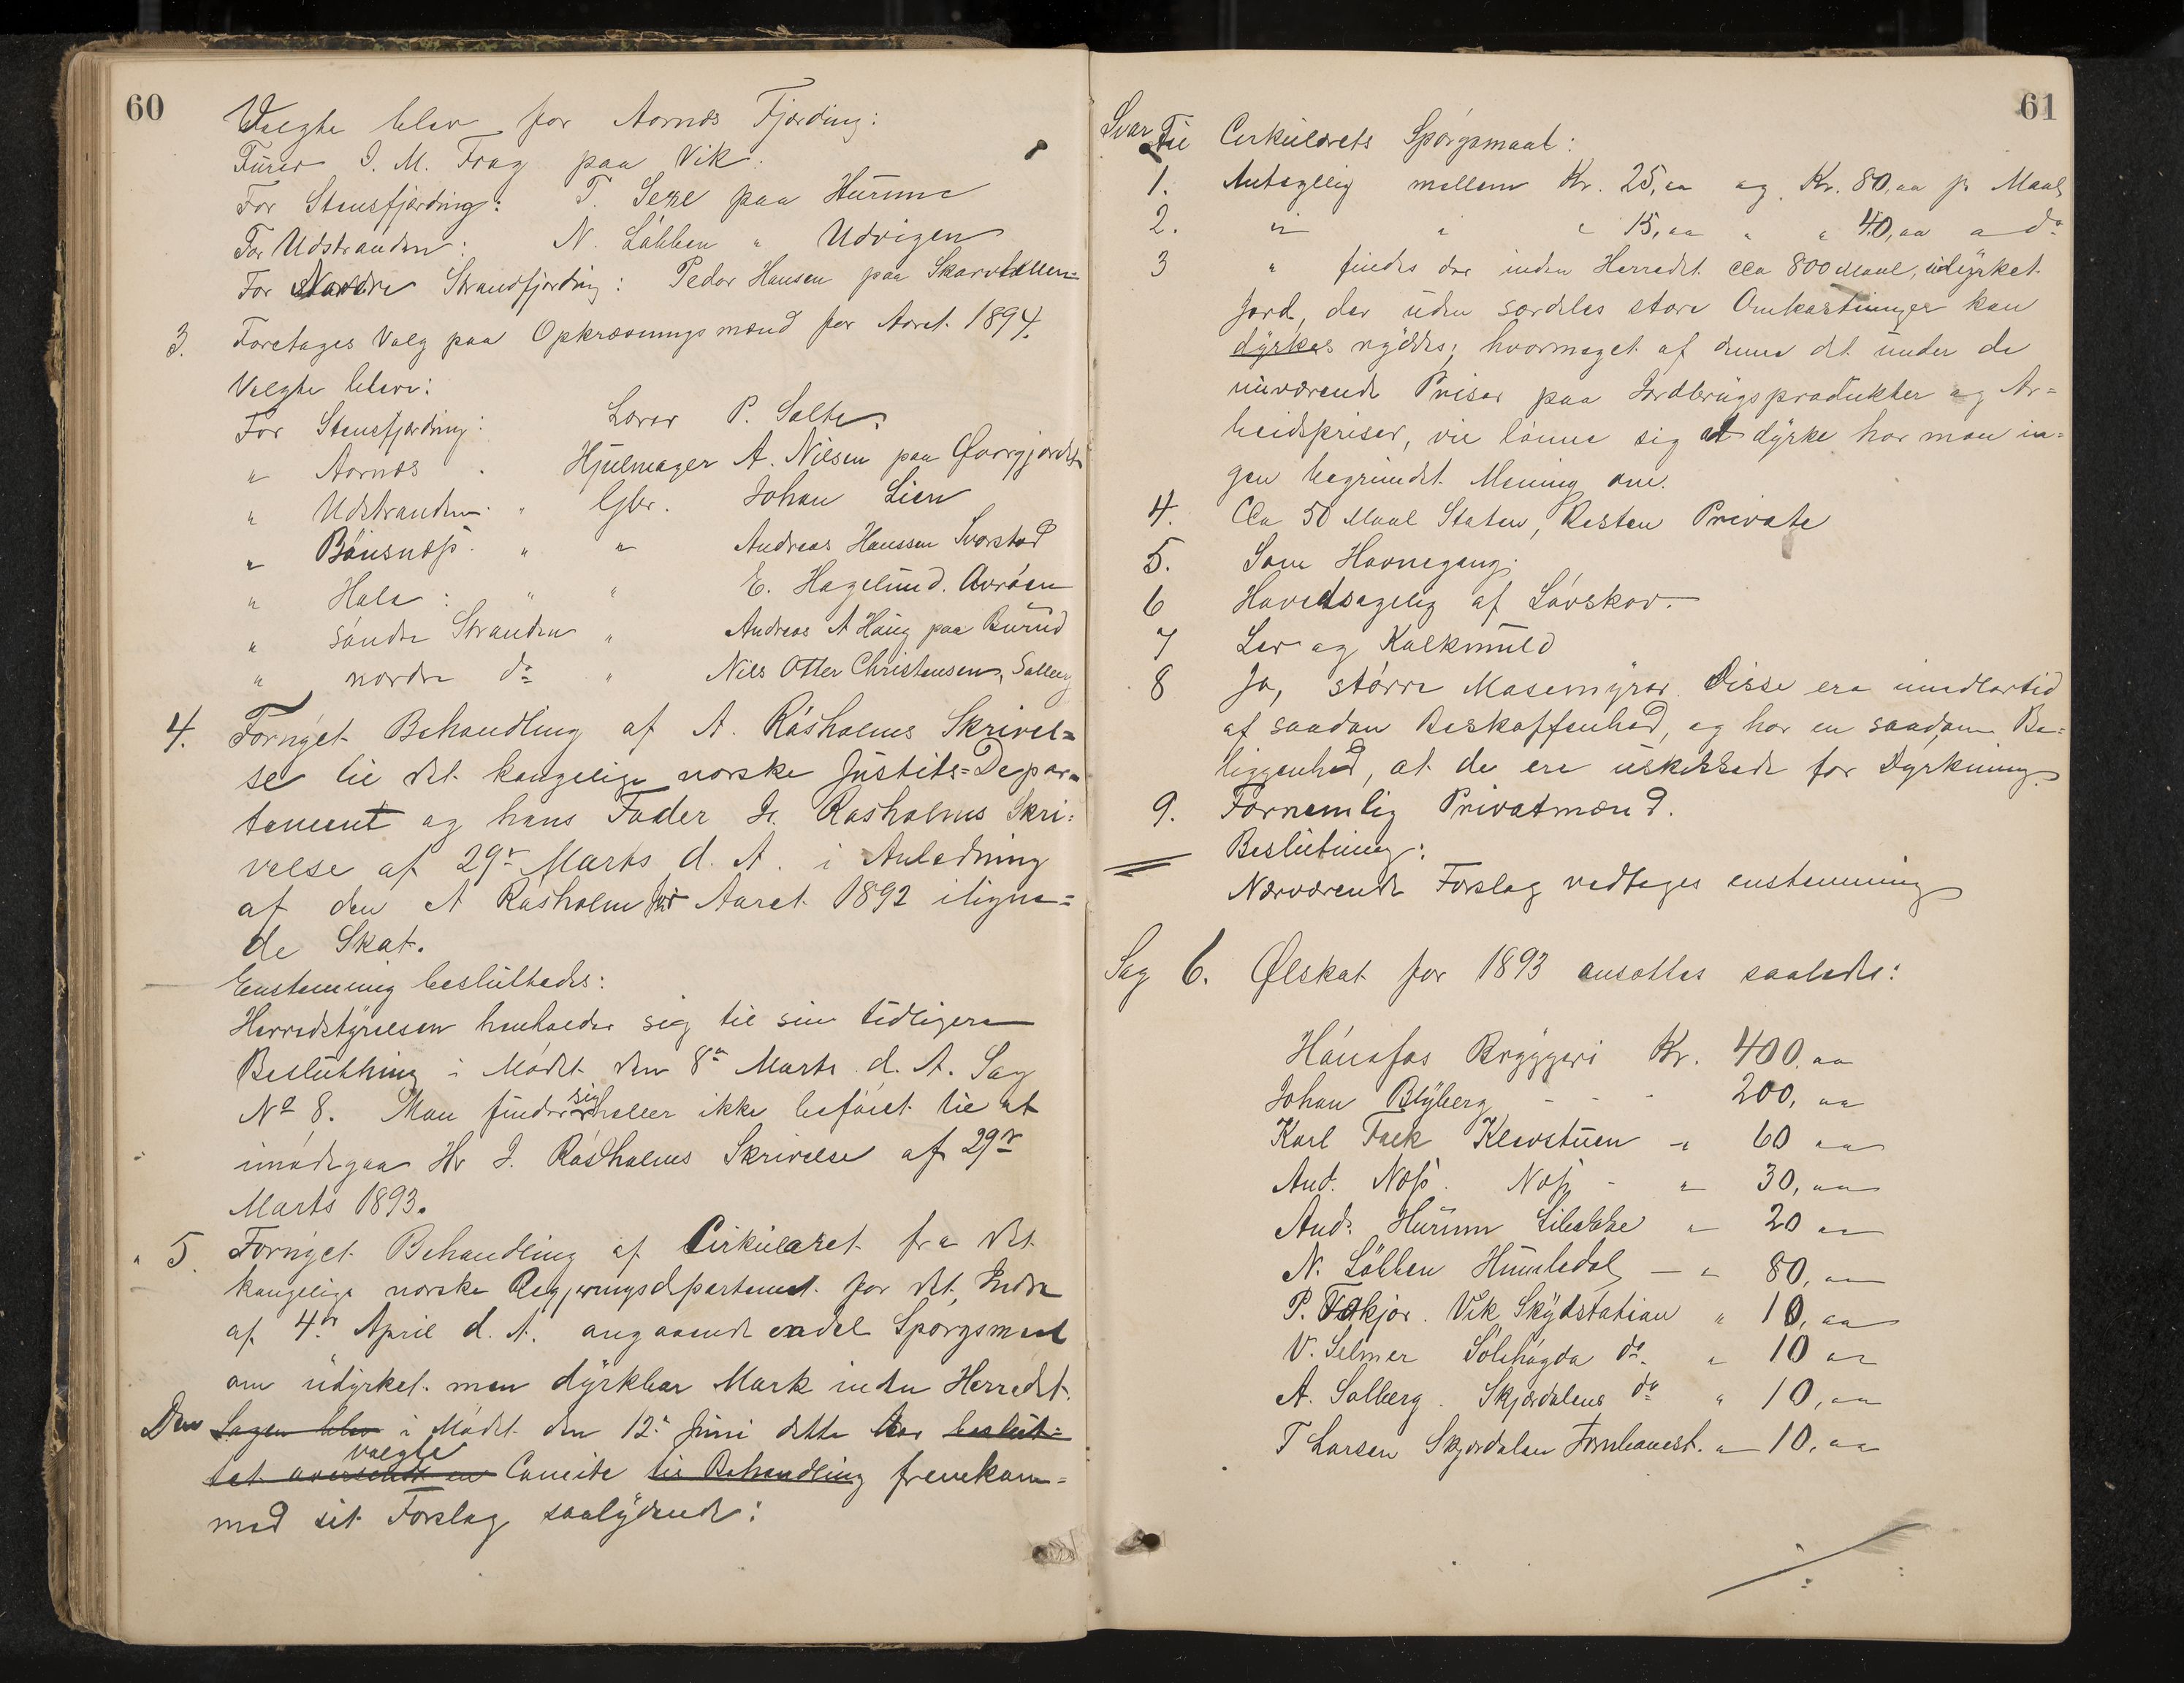 60
Valgte blev for Aornæs Fjerding:
Furer I. M. Frog paa Vik.
For Stensfjerding: T. Sexe paa Hurum
For Udstranden: N. Løbben " Udvigen
For Nordre Strandfjerding: Peder Hansen paa
3. Foretages Valg paa Opkrævningsmænd for Aaret 1894.
Valgte bleve:
For Stensfjerding: Lærer P. Solte.
" Aornæs . Hjulmager A. Nilsen paa
" Udstranden. " Gbr. Johan Lien
" Bönsnæss. " " Andreas Hanssen Svarstad
" Hole : " " E. Hagelund. Avröen
" söndre Stranden " Andreas A Haug paa Burud
" nordre do " Nils Otter Christensen, Solberg
4. Fornyet Behandling af A. Råsholms Skrivel=
se til det kongelige norske Justits=Depar=
tement og hans Fader H. Rasholms Skri=
velse af 29de Marts d. A. i Anledning
af den A Råsholm for Aaret 1892 iligne=
de Skat.
Enstemmig besluttedes:
Herredstyrelsen henholder sig til sin tidligere
Beslutning i Mödet den 8de Marts d. A. Sag
No 8. Man finder sig heller ikke beföiet til at
imödegaa Hr J. Råsholms Skrivelse af 29de
Marts 1893.
" 5. Fornyet Behandling af Cirkulæret fra det
kongelige norske Regjeringsdepartement for det Indre
af 4de April d. A. angaaende endel Spörgsmaal
om udyrket men dyrkbar Mark inden Herredet.
Den Sagen blev i Mödet den 12te Juni dette Aar beslut=
valgte
tet oversendt en Comite til Behandling fremkom=
med sit Forslag saalydende:
61
Svar Til Cirkulærets Spörgsmaal:
1. Antagelig mellem Kr. 25,oo og Kr. 80,oo pr Maal
2. " " " 15,oo " " 40,oo a do
3 " findes der inden Herredet cca 800 Maal, udyrket
Jord, der uden særdeles store Omkostninger kan
dyrkes ryddes; hvormeget af denne det under de
nuværende Priser paa Jordbrugsprodukter og Ar=
beidspriser, vil lönne sig at dyrke har man in=
gen begrundet Mening om.
4. Cca 50 Maal Staten, Resten Private
5. Som Havnegang.
6 Hovedsagelig af Lövskov.
7 Ler og Kalkmuld
8 Ja, större Mosemyrer. Disse ere imidlertid
af saadan Beskaffenhed, og har en saadan Be=
liggenhed, at de ere uskikkede for Dyrkning.
9. Fornemlig Privatmænd.
Beslutning:
Nærværende Forslag vedtages enstemmig
Sag 6. Ølskat for 1893 ansattes saaledes:
Hönefos Bryggeri Kr. 400.oo
Johan Blyberg - - - 200, oo
Karl Falk Klevstuen - " 60 oo
And. Næss. Næss - " 30, oo
Andr. Hurum Libakke " 20 oo
N. Löbben Humledal - " 80, oo
P. Vik Skydstation " 10, oo
V. Selmer Sölihögda do. " 10 oo
A. Solberg. Skjærdalens do " 10, oo
T Larsen Skjærdalen Jernbanest. " 10, oo